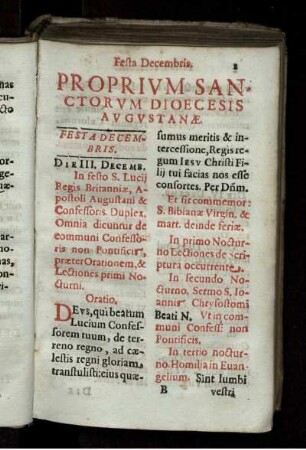 Festa Decembris.
PROPRIVM SAN-
CTORVM DIOECESIS
AVGVSTANÆ.
FESTA DECEM-
BRIS.
DIE III. DECEMB.
In festo S. Lucij
Regis Britanniæ, A-
postoli Augustani &
Confessoris. Duplex.
Omnia dicuntur de
communi Confesso-
ris non Pontificis,
præter Orationem, &
Lectiones primi No-
cturni.
Oratio.
DEvs, qui beatum
Lucium Confes-
sorem tuum, de ter-
reno regno, ad cæ-
lestis regni gloriam
transtulisti: eius quæ-
sumus meritis & in-
tercessione, Regis re-
gum IESV Christi Fi-
lij tui facias nos esse
consortes. Per Dñm.
Et fit commemor:
S. Bibianæ Virgin. &
mart. deinde feriæ.
In primo Noctur-
no Lectiones de Scri-
ptura occurrente.
In secundo No-
cturno. Sermo S. Io-
annis Chrysostomi
Beati N. Vt in com-
muni Confess: non
Pontificis.
In tertio noctur-
no. Homilia in Euan-
gelium. Sint lumbi
B vestri